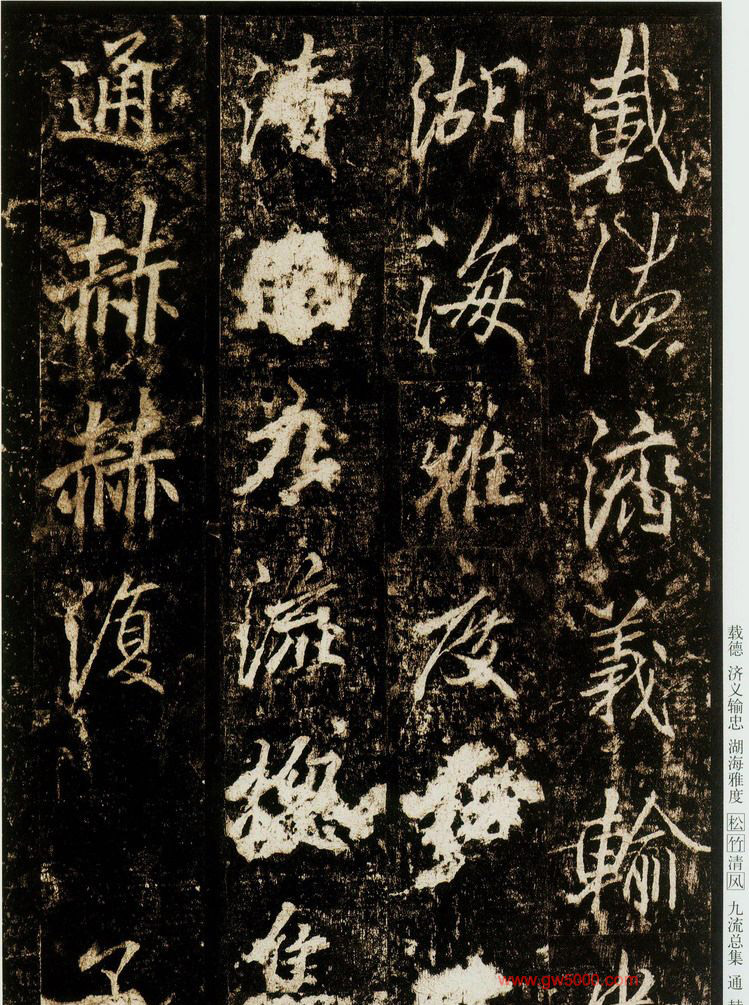 載德濟義輸
湖海雅度
清九流總
通赫赫復
载德 济义输忠 湖海雅度 松竹清风 九流总集 通
www.gw5000.com